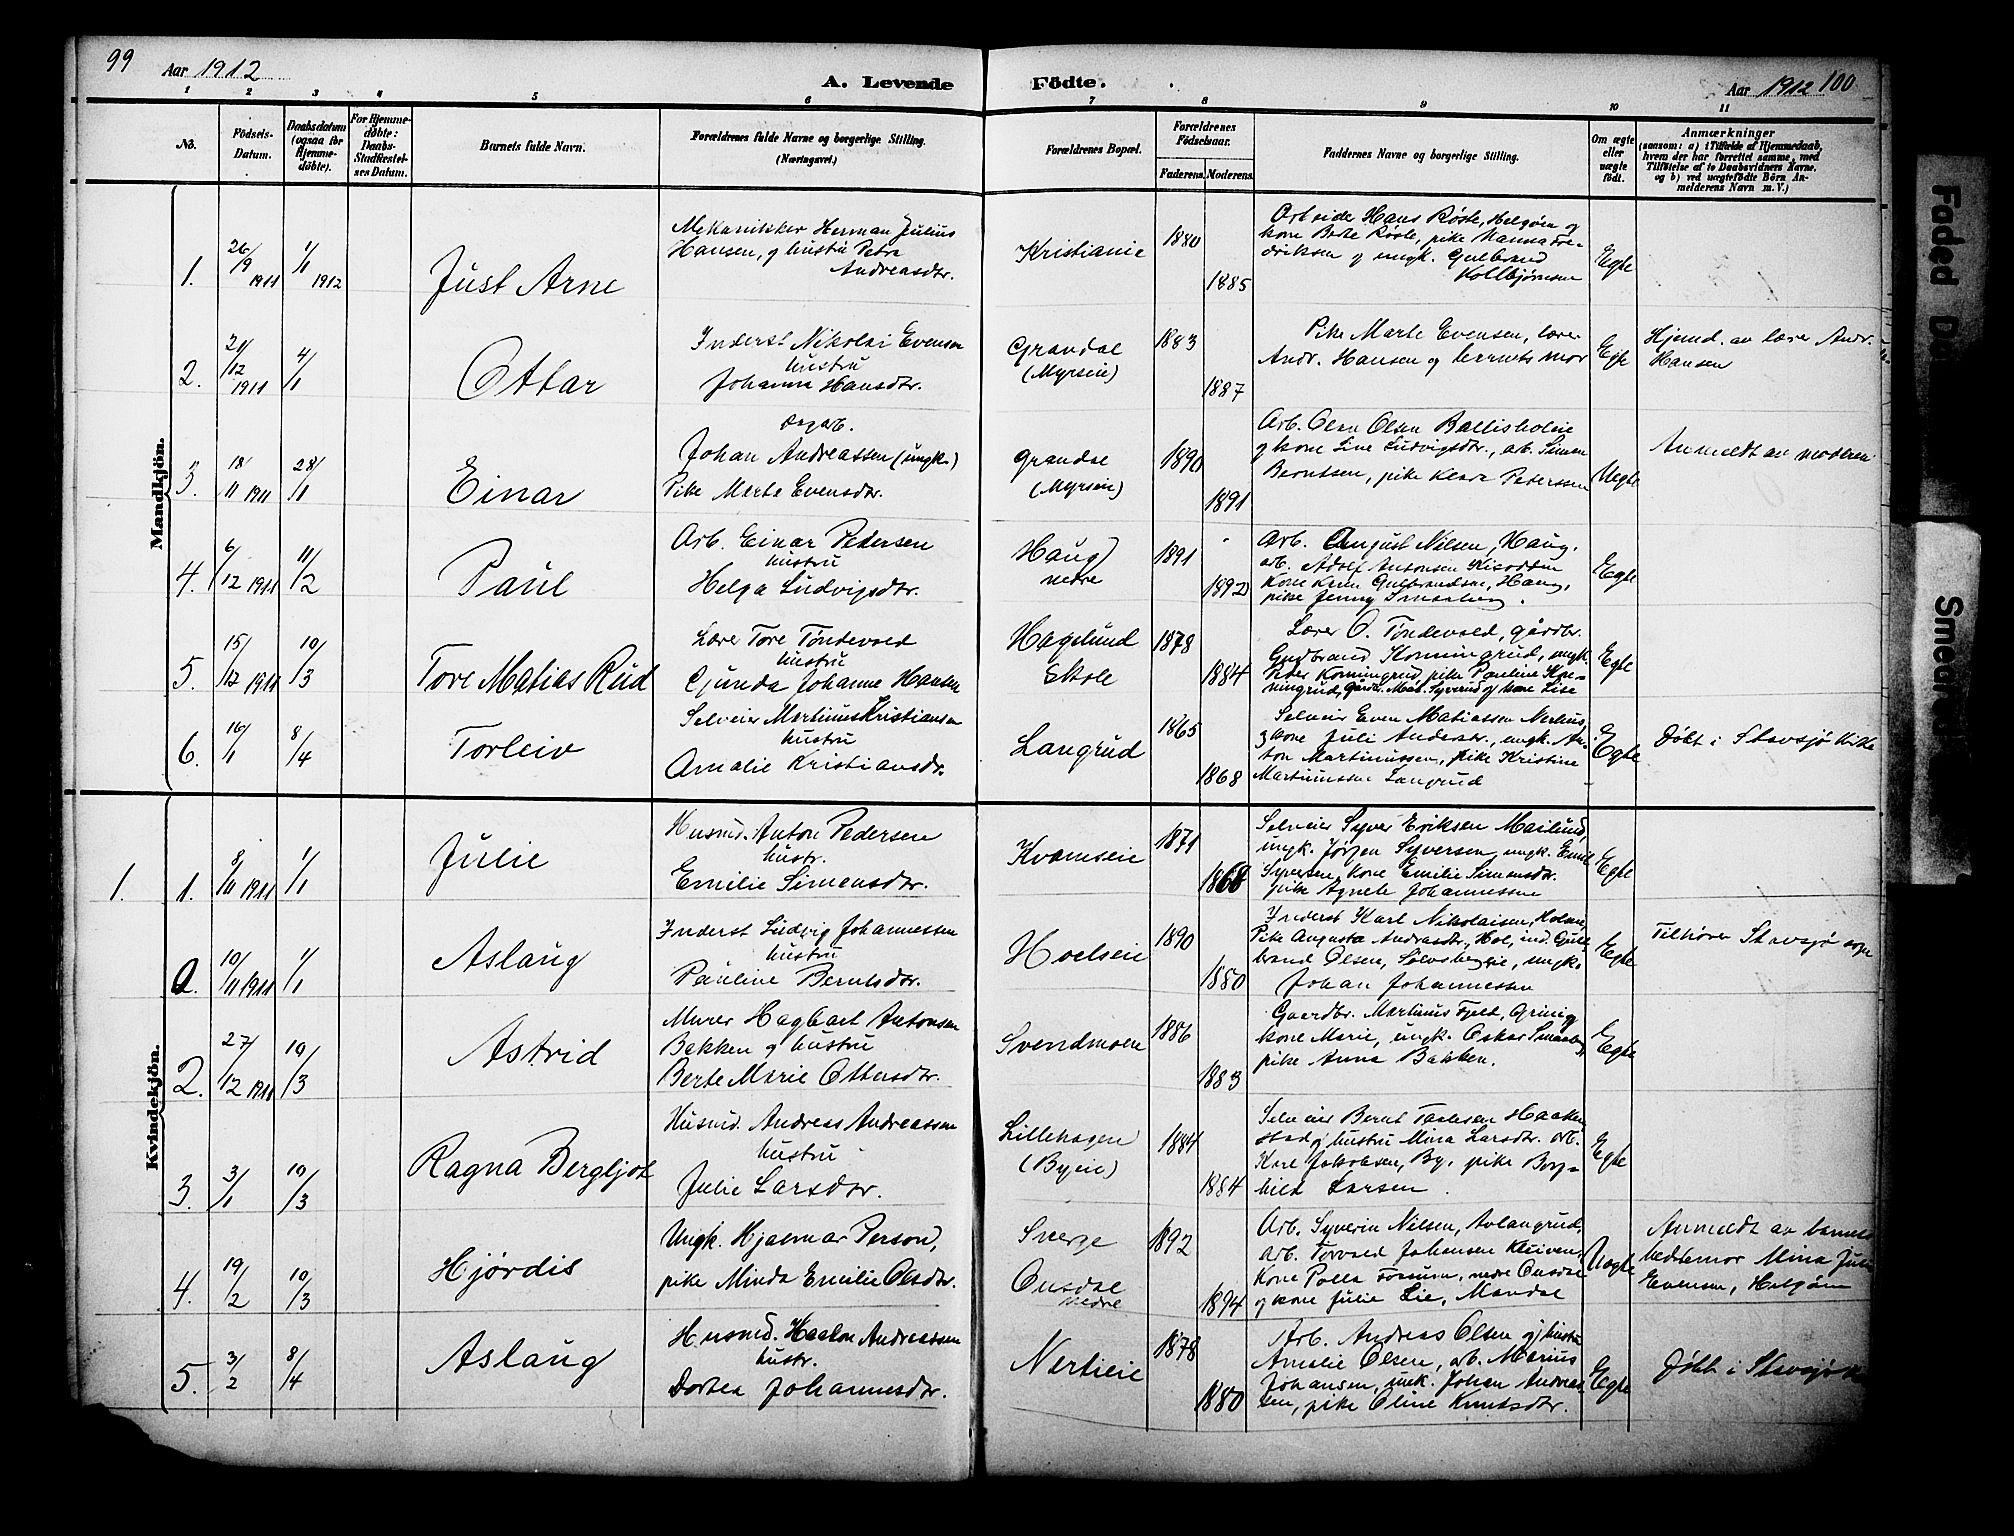 99
Aar 1912
A. Levende
Födte.
Aar 1912
100
1 2 3 4 5 6 7 8 9 10 11
No.
Födsels-
Datum.
Daabsdatum
(ogsaa for
Hjemme-
døbte).
For Hjemme-
døbte:
Daabs-
Stadfæstel-
ses Datum.
Barnets fulde Navn.
Forældrenes fulde Navne og borgerlige Stilling.
(Næringsvei.)
Forældrenes Bopæl.
Forældrenes
Födselsaar.
Faderens. Moderens.
Faddernes Navne og borgerlige Stilling.
Om ægte
eller
uægte
födt.
Anmærkninger
(saasom: a) i Tilfælde af Hjemmedaab,
hvem der har forrettet samme, med
Tilföielse af to Daabsvidners Navne,
og b) ved uægtefödte Börn An-
melderens Navn m. V.)
Mandkjön.
1. 26/9 1911 1/1 1912
Just Arne
Mekanikker Herman Julius
Hansen, og hustru Petra
Andreasdtr.
Kristiania
1880
1885
Arbeider Hans Røste, Helgøen og
kone Berte Røste, pike Nanna Fre-
driksen og ungk. Gulbrand
Kolbjørnsen
Egte
2. 21/12 1911 4/1
Ottar
Inderst Nikolai Evensen
hustru
Johanne Hansdtr.
Grandal
(Myrseie)
1883
1887
Pike Marte Evensen, lærer
Andr. Hansen og barnets mor
Egte
Hjemd. av lærer Andr.
Hansen
3. 18/11 1911 28/1
Einar
Dagarb.
Johan Andreassen (ungk.)
Pike Marte Evensdtr.
Grandal
(Myrseie)
1890
1891
Arb. Olen Olsen Ballisholeie
og kone Line Ludvigsdtr., arb. Simen
Berntsen, pike Klara Peterssen
Uegte
Anmeldt av moderen
4. 6/12 1911 11/2
Paul
Arb. Einar Pedersen
hustru
Helga Ludvigsdtr.
Haug
nedre
1891
1892
Arb. August Nilsen, Haug,
arb. Adolf Antonsen
Kone Karen Gulbrandsen, Haug,
pike Jenny Smaaberg.
Egte
5. 15/12 1911 10/3
Tore Matias Rud
Lærer Tore Tøndevold
hustru
Gunda Johanne Hansen
Hagelund
Skole
1878
1884
Lærer O. Tøndevold, gårdbr.
Gudbrand Konningrud, ungk.
Peter Konningrud, pike Pauline Kon-
ningrud, Gårdb. Mat. Syverud og kone Lise
Egte
6. 16/1 8/4
Torleiv
Selveier Martinus Kristiansen
hustru
Amalie Kristiansdr.
Langrud
1865
1868
Selveier Even Matiassen Nerlius,
og kone Juli Andersdtr., ungk. An-
ton Martinussen, pike Kristine
Martinussen Langrud
Egte
Døbt i Stavsjø kirke
Kvindekjön.
1.
1. 8/11 1911 1/1
Julie
Husmd. Anton Pedersen
hustr.
Emilie Simensdtr.
Kvamseie
1871
1868
Selveier Syver Eriksen Mailund,
ungk. Jørgen Syversen, ungk. Emil
Syversen, Kone Emilie Simensdtr.
pike Agnete Johannessen
Egte
0. 10/11 1911 1/1
Aslaug
Inderst Ludvig Johannessen
hustru
Pauline Berntsdtr.
Hoelseie
1890
1880
Inderst Karl Nikolaisen, Holseie,
Pike Augusta Andrasdtr, Hol, ind. Gul-
brand Olsen, Solvsbergeie, ungk.
Johan Johannessen
Egte
Tilhører Stavsjø sogn
2. 27/12 1911 10/3
Astrid
Murer Hagbart Antonsen
Bakken og hustru
Berte Marie Ottersdtr.
Svendmoen
1886
1883
Gaardbr. Martinus Fjeld, Grinig
kone Marie, ungk. Oskar Smaaberg,
pike Anna Bakken.
Egte
3. 3/1 10/3
Ragna Bergljot
Husmd. Andreas Andreassen
hustru
Julie Larsdtr.
Lillehagen
(Byeie)
1884
1884
Selveier Bernt Taalesen Haaken
stad og hustru Mina Larsdtr. arb.
Kare Jakobsen, By, pike Borg-
hild Larsen.
Egte
4. 19/2 10/3
Hjørdis
Ungk. Hjalmar Person,
pike Minda Emilie Olsdtr.
Sverge
Onsdal
nedre
1892
1894
Arb. Syverin Nilsen, Avlangrud,
arb. Torvald Johansen Kleiven,
Kone Polla Fossum, nedre Onsdal
og kone Julie Lie, Mandal
Uegte
Anmeldt av barnets
bedstemor Mina Juli
Evensen, Helgøen
5. 3/2 8/4
Aslaug
Husmd. Haakon Andreassen
hustr.
Dortea Johannesdtr.
Nerlieie
1878
1880
Arb. Andreas Olsen og hustru
Amalie Olsen, arb. Marius
Johansen, ungk. Johan Andreas-
sen, pike Oline Knutsdtr.
Egte
Døbt i Stavsjø k
Faded D
Smeared